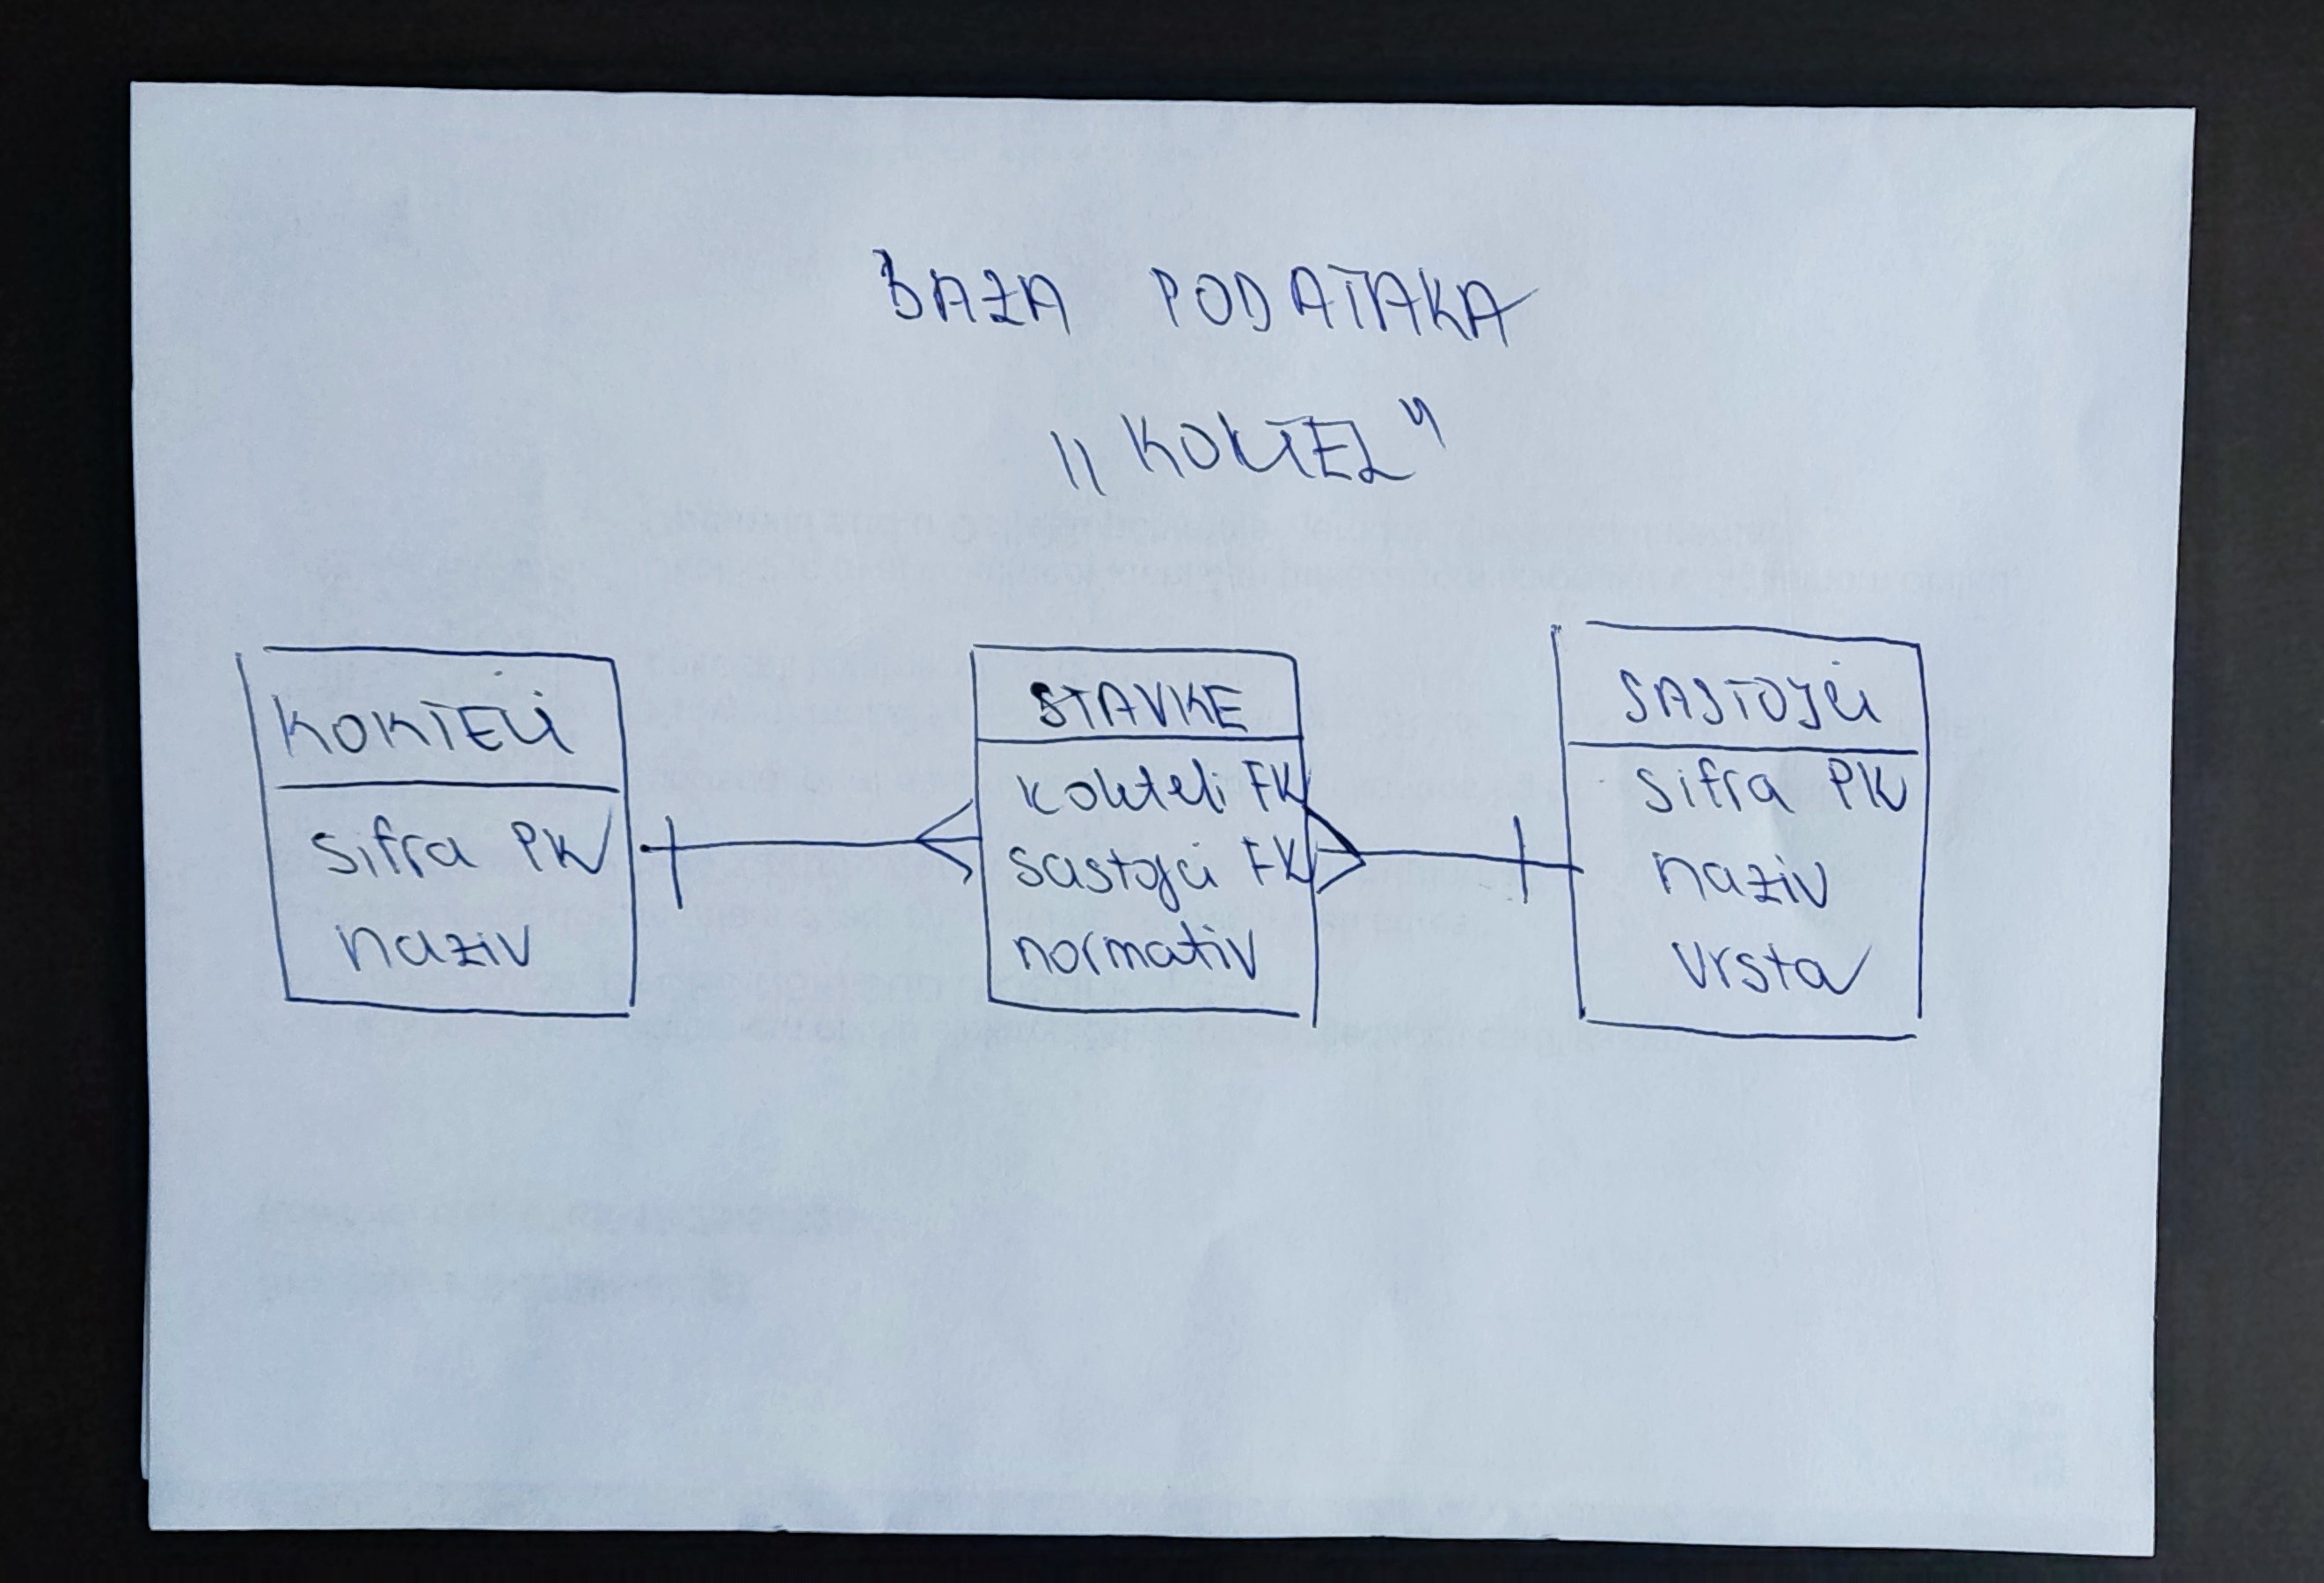 BAZA PODATAKA
„KOKTEL"
KOKTELI
sifra PK
naziv
STAVKE
kokteli FK
sastojci FK
normativ
SASTOJCI
sifra PK
naziv
vrsta